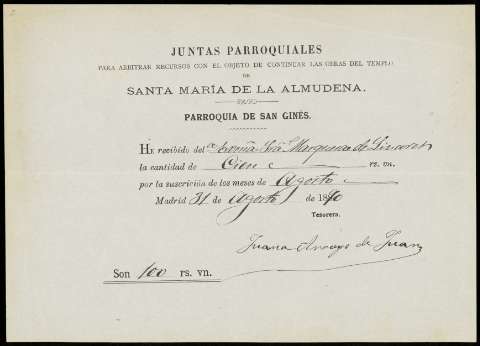 JUNTAS PARROQUIALES
PARA ARBITRAR RECURSOS CON EL OBJETO DE CONTINUAR LAS OBRAS DEL TEMPLO
DE
SANTA MARÍA DE LA ALMUDENA.
PARROQUIA DE SAN GINÉS.
HE recibido del Sra Marquesa de
la cantidad de Cien rs. vn.
por la suscricion de los meses de Agosto
Madrid 31 de Agosto de 1890
Tesorera.
Juana Arroyo de Juan
Son 100 rs. vn.